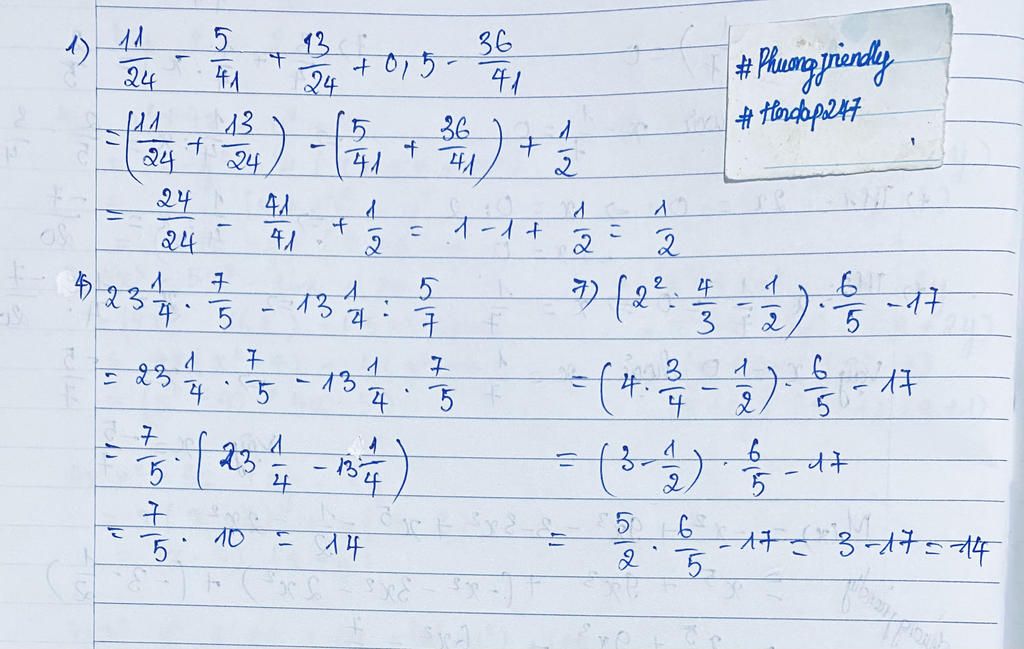 1) 11/24 - 5/41 + 13/24 + 0,5 - 36/41
= (11/24 + 13/24) - (5/41 + 36/41) + 1/2
= 24/24 - 41/41 + 1/2 = 1 - 1 + 1/2 = 1/2
#Phuongfriendly
#Hoidap247
4) 23 1/4 . 7/5 - 13 1/4 : 5/7
= 23 1/4 . 7/5 - 13 1/4 . 7/5
= 7/5 . (23 1/4 - 13 1/4)
= 7/5 . 10 = 14
7) (2² : 4/3 - 1/2) . 6/5 - 17
= (4 . 3/4 - 1/2) . 6/5 - 17
= (3 - 1/2) . 6/5 - 17
= 5/2 . 6/5 - 17 = 3 - 17 = -14